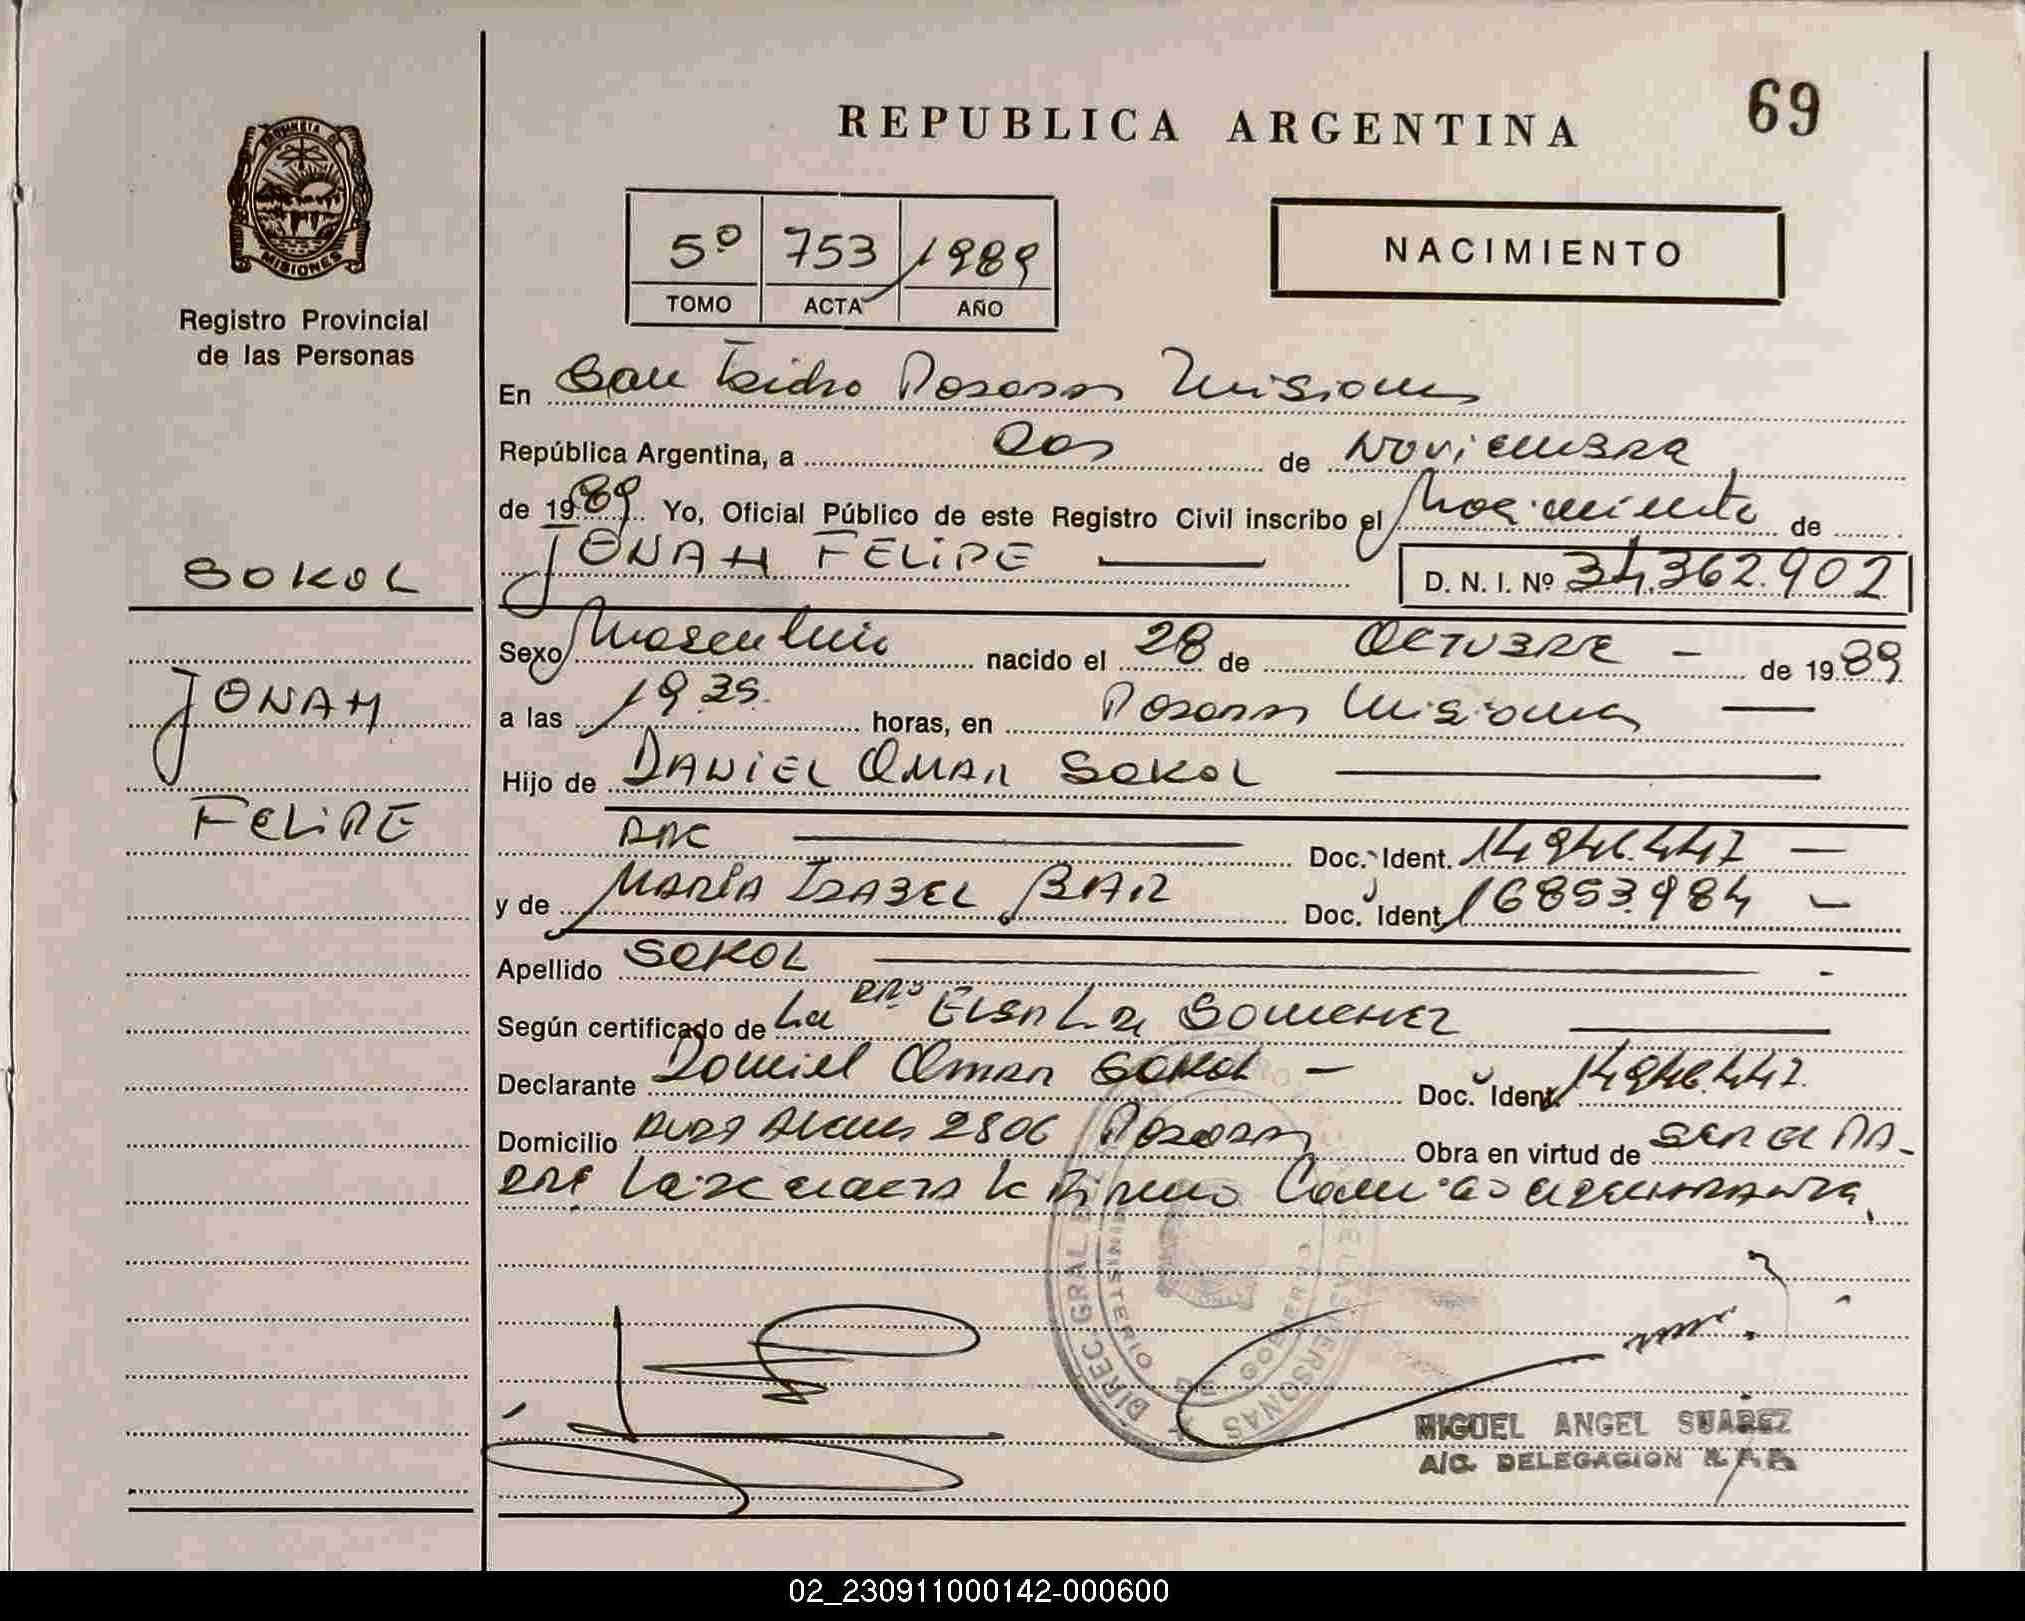 REPUBLICA ARGENTINA
69
PROVINCIA D
MISIONES
Registro Provincial
de las Personas
5º 753 1989
TOMO ACTA AÑO
NACIMIENTO
En San Isidro Posadas Misiones
República Argentina, a Dos de Noviembre
de 1989 Yo, Oficial Público de este Registro Civil inscribo el Nacimiento de
JONAH FELIPE D. N. I. Nº 34.362.902
SOKOL
JONAH
FELIPE
Sexo Masculino nacido el 28 de OCTUBRE - de 1989
a las 19 35. horas, en Posadas Misiones
Hijo de DANIEL OMAR SOKOL
ARG Doc. Ident. 14.946.447 -
y de MARIA ISABEL BAR Doc. Ident. 16853.984 -
Apellido SOKOL
Según certificado de La Elsa L. de
Declarante Daniel Omar SOKOL - Doc. Ident. 14.946.447.
Domicilio 2806 Posadas Obra en virtud de SER EL PA-
DRE
DIREC GRAL
MINISTERIO DE GOBIERNO
PERSONAS
MIGUEL ANGEL SUAREZ
A/C. DELEGACION R. P. P.
02_230911000142-000600